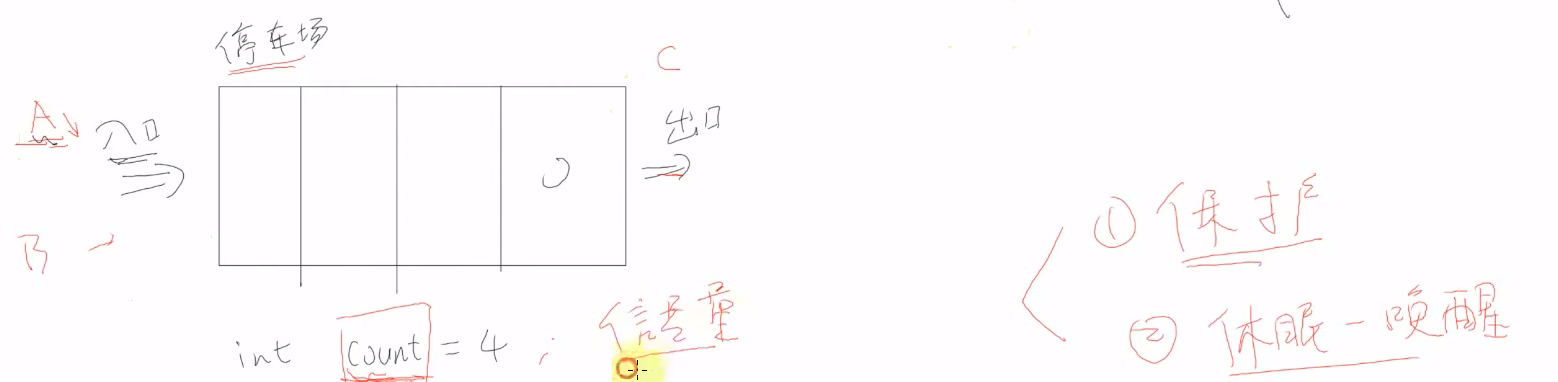 停车场
C
A
入口
出口
B
int count = 4;
信号量
① 保护
② 休眠-唤醒